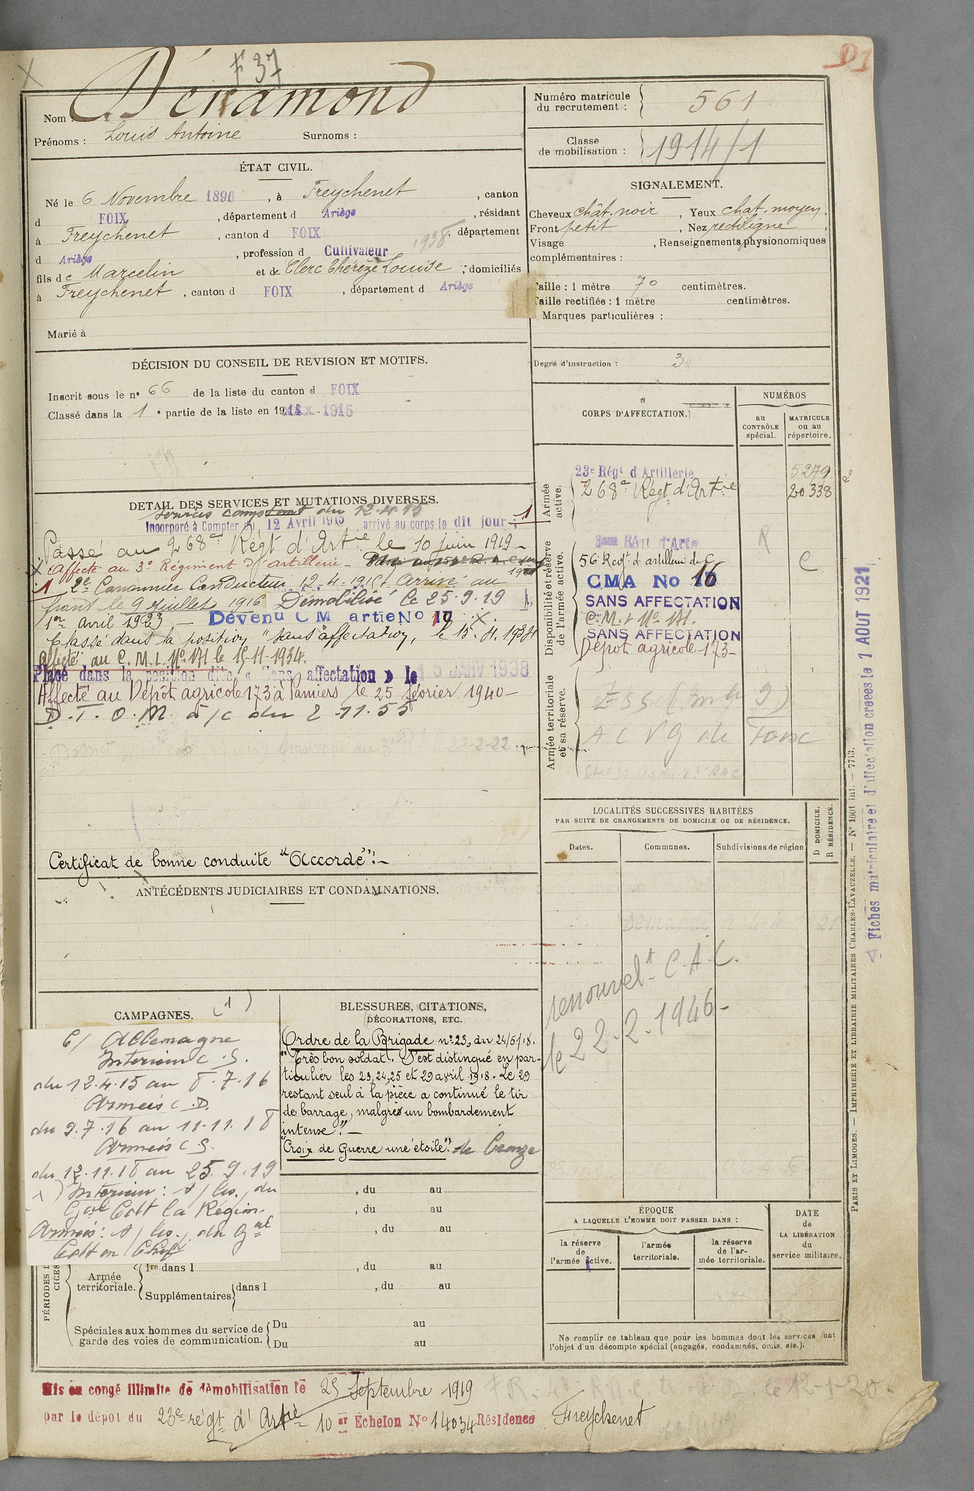 F 37
Nom : Dénamond
Prénoms : Louis Antoine Surnoms :
ÉTAT CIVIL.
Né le 6 Novembre 1896, à Freychenet, canton
d FOIX, département d Ariège, résidant
à Freychenet, canton d FOIX, département
d Ariège, profession d Cultivateur 1938
fils de Marcelin et de Clerc Thérèze Louise ; domiciliés
à Freychenet, canton d FOIX, département d Ariège
Marié à
DÉCISION DU CONSEIL DE REVISION ET MOTIFS.
Inscrit sous le n° 66 de la liste du canton d FOIX
Classé dans la 1e partie de la liste en 1915
DETAIL DES SERVICES ET MUTATIONS DIVERSES.
Incorporé à Compter du 12 Avril 1915 arrivé au corps le dit jour 1
Passé au 268e Régt d'Artie le 10 juin 1919
Affecté au 3e Régiment d'artillerie
1 2e Canonnier Conducteur 12.4.1915. Arrivé au
front le 9 juillet 1916 Démobilisé le 25.9.19
1er avril 1923 - Devenu C M artie No 19
Classé dans la position "sans affectation, le 15.11.1934
Affecté au C.M.I. No 171 le 15-11-1934.
Placé dans la position dite « Sans affectation » le 15 JANV 1938
Affecté au Dépôt agricole 173 à Pamiers le 25 février 1940
D.T.O.M. à/c du 2-11.55
Certificat de bonne conduite "Accordé"!
ANTÉCÉDENTS JUDICIAIRES ET CONDAMNATIONS.
CAMPAGNES. (1)
C/ Allemagne
Intérieur C.S.
du 12.4.15 au 8.7.16
Armées C.D.
du 9.7.16 au 11.11.18
Armées C.S.
du 12.11.18 au 25.9.19
Intérieur : du
Gal Cdt la Région.
Armées : du Gal
Cdt en Chef
BLESSURES, CITATIONS,
DÉCORATIONS, ETC.
Ordre de la Brigade n° 23, du 24/5/18.
"Très bon soldat. S'est distingué en par-
ticulier les 23, 24, 25 et 29 avril 1918. Le 29
restant seul à la pièce a continué le tir
de barrage, malgré un bombardement
intense".
Croix de Guerre une étoile". de bronze
, du au
, du au
, du au
PÉRIODES D'
Armée territoriale. 1re dans l , du au
Supplémentaires dans l , du au
Spéciales aux hommes du service de garde des voies de communication. Du au
Du au
Mis en congé illimité de démobilisation le 25 Septembre 1919
par le dépôt du 23e régt d'Artie 10er Echelon No 14034 Résidence Freychenet
Numéro matricule du recrutement : 561
Classe de mobilisation : 1914/1
SIGNALEMENT.
Cheveux chât. noir, Yeux chat. moyen,
Front petit, Nez rectiligne,
Visage , Renseignements physionomiques
complémentaires :
Taille : 1 mètre 70 centimètres.
Taille rectifiée : 1 mètre centimètres.
Marques particulières :
Degré d'instruction : 3
CORPS D'AFFECTATION.
NUMÉROS
au CONTRÔLE spécial.
MATRICULE ou au répertoire.
Armée active.
23e Régt d'Artillerie 5279
268e Régt d'Artie 20338
Disponibilité et réserve de l'armée active.
56 Régt d'artillerie de C. R C
CMA No 16
SANS AFFECTATION
C.M.I. No 171.
SANS AFFECTATION
Dépôt agricole 173
Armée territoriale et sa réserve.
LOCALITÉS SUCCESSIVES HABITÉES
PAR SUITE DE CHANGEMENTS DE DOMICILE OU DE RÉSIDENCE.
Dates. Communes. Subdivisions de région D DOMICILE. R RÉSIDENCE.
renouvelt C.A.C.
le 22-2-1946
ÉPOQUE
A LAQUELLE L'HOMME DOIT PASSER DANS :
la réserve de l'armée active.
l'armée territoriale.
la réserve de l'armée territoriale.
DATE de LA LIBÉRATION du service militaire.
Ne remplir ce tableau que pour les hommes dont les services font
l'objet d'un décompte spécial (engagés, condamnés, omis, etc.).
PARIS ET LIMOGES. — IMPRIMERIE ET LIBRAIRIE MILITAIRES CHARLES-LAVAUZELLE. — N° 1001 int. — 7713.
Fiches matriculaire et d'affectation créées le 1 AOUT 1921